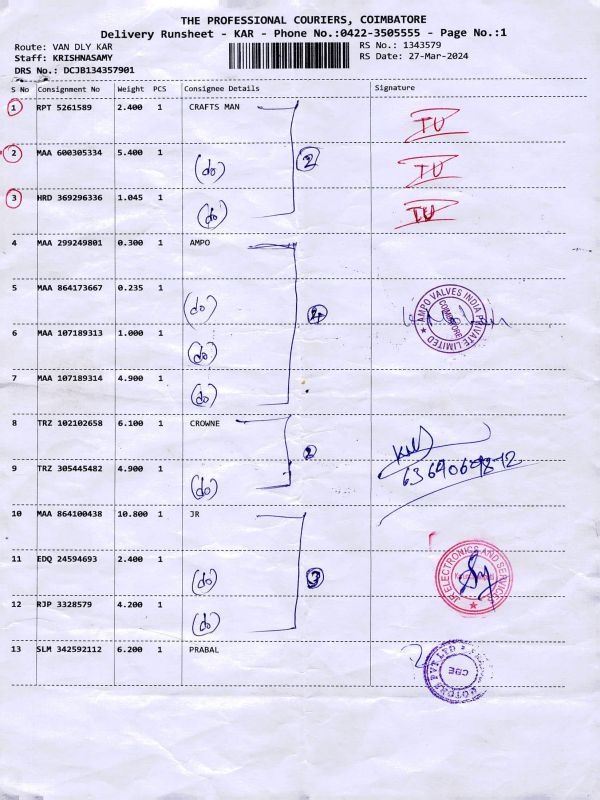 THE PROFESSIONAL COURIERS, COIMBATORE
Delivery Runsheet - KAR - Phone No.:0422-3505555 - Page No.:1
Route: VAN DLY KAR RS No.: 1343579
Staff: KRISHNASAMY RS Date: 27-Mar-2024
DRS No.: DCJB134357901
S No Consignment No Weight PCS Consignee Details Signature
1 RPT 5261589 2.400 1 CRAFTS MAN IU
2 MAA 600305334 5.400 1 (do) 2 IU
3 HRD 369296336 1.045 1 (do) IU
4 MAA 299249801 0.300 1 AMPO
5 MAA 864173667 0.235 1 (do) 4
AMPO VALVES INDIA PRIVATE LIMITED
COIMBATORE
6 MAA 107189313 1.000 1 (do)
7 MAA 107189314 4.900 1 (do)
8 TRZ 102102658 6.100 1 CROWNE 2
9 TRZ 305445482 4.900 1 (do)
10 MAA 864100438 10.800 1 JR
11 EDQ 24594693 2.400 1 (do) 3
JR ELECTRONICS AND SERVICES
12 RJP 3328579 4.200 1 (do)
13 SLM 342592112 6.200 1 PRABAL
PVT LTD
CBE